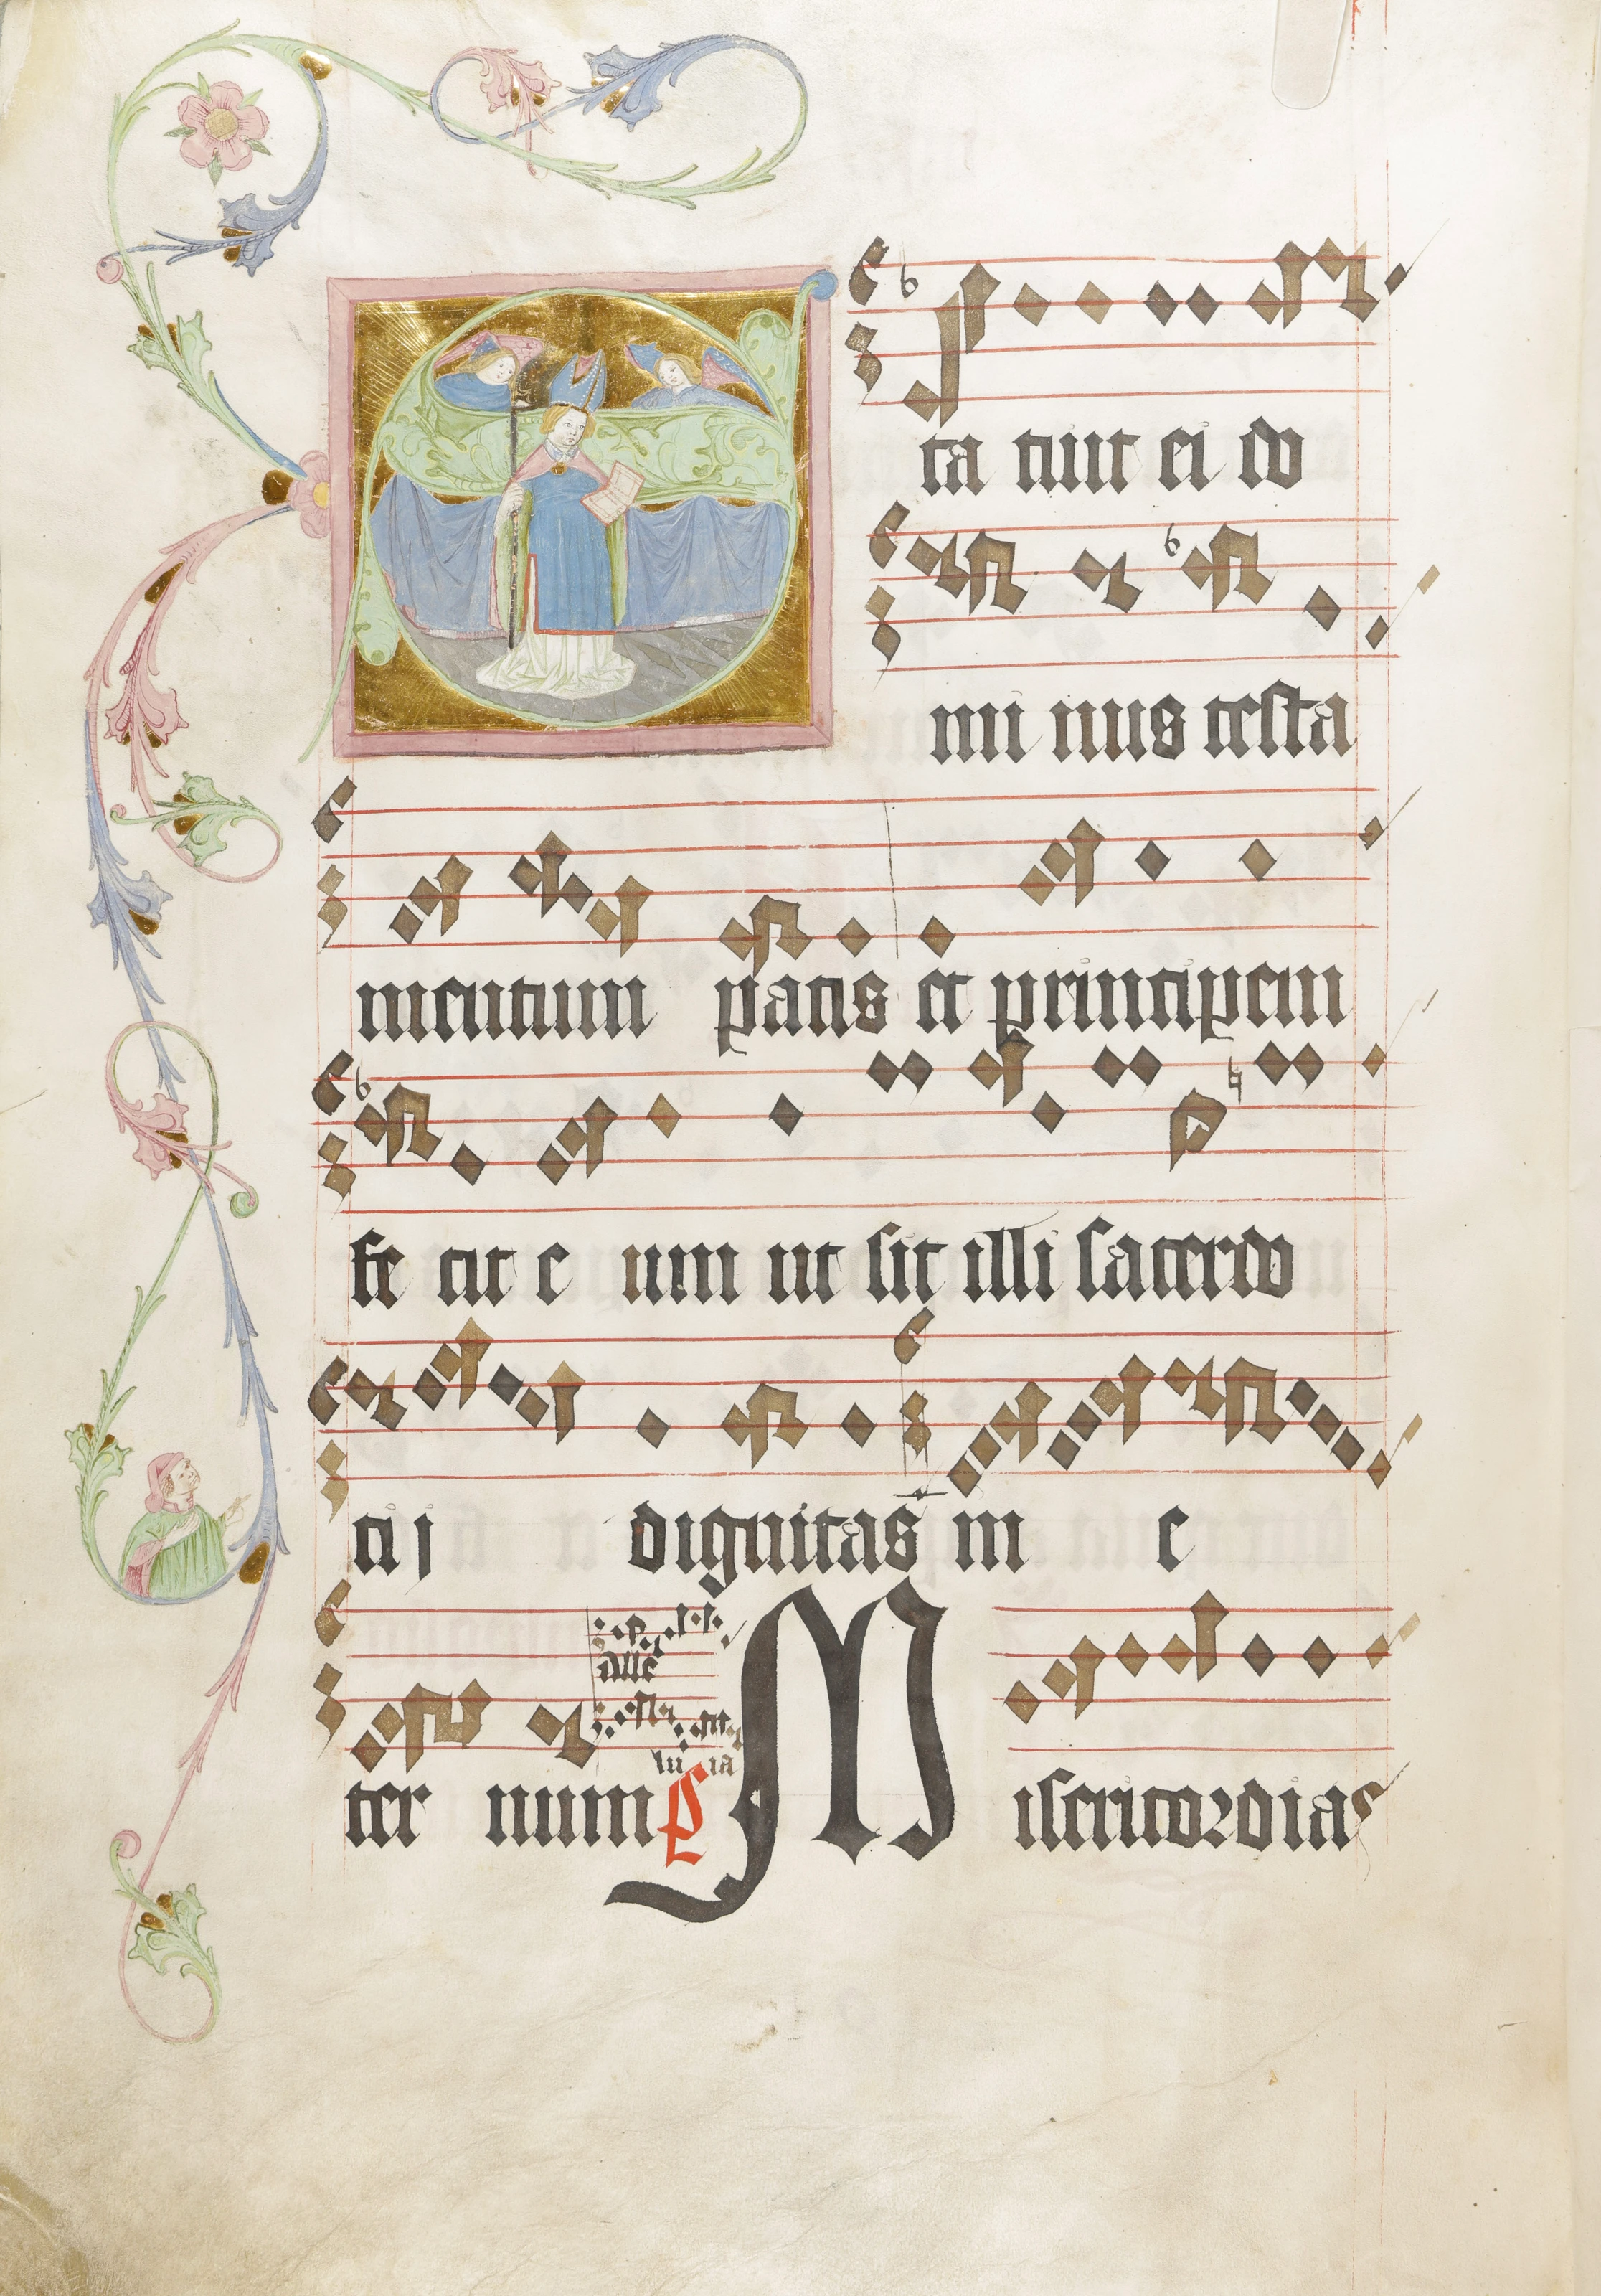 S ta tuit ei do
mi nus testa
mentum pacis et principem
fe cit e um ut sit illi sacerdo
ti j dignitas in e
alle
lu ia
ter num p Misericordias